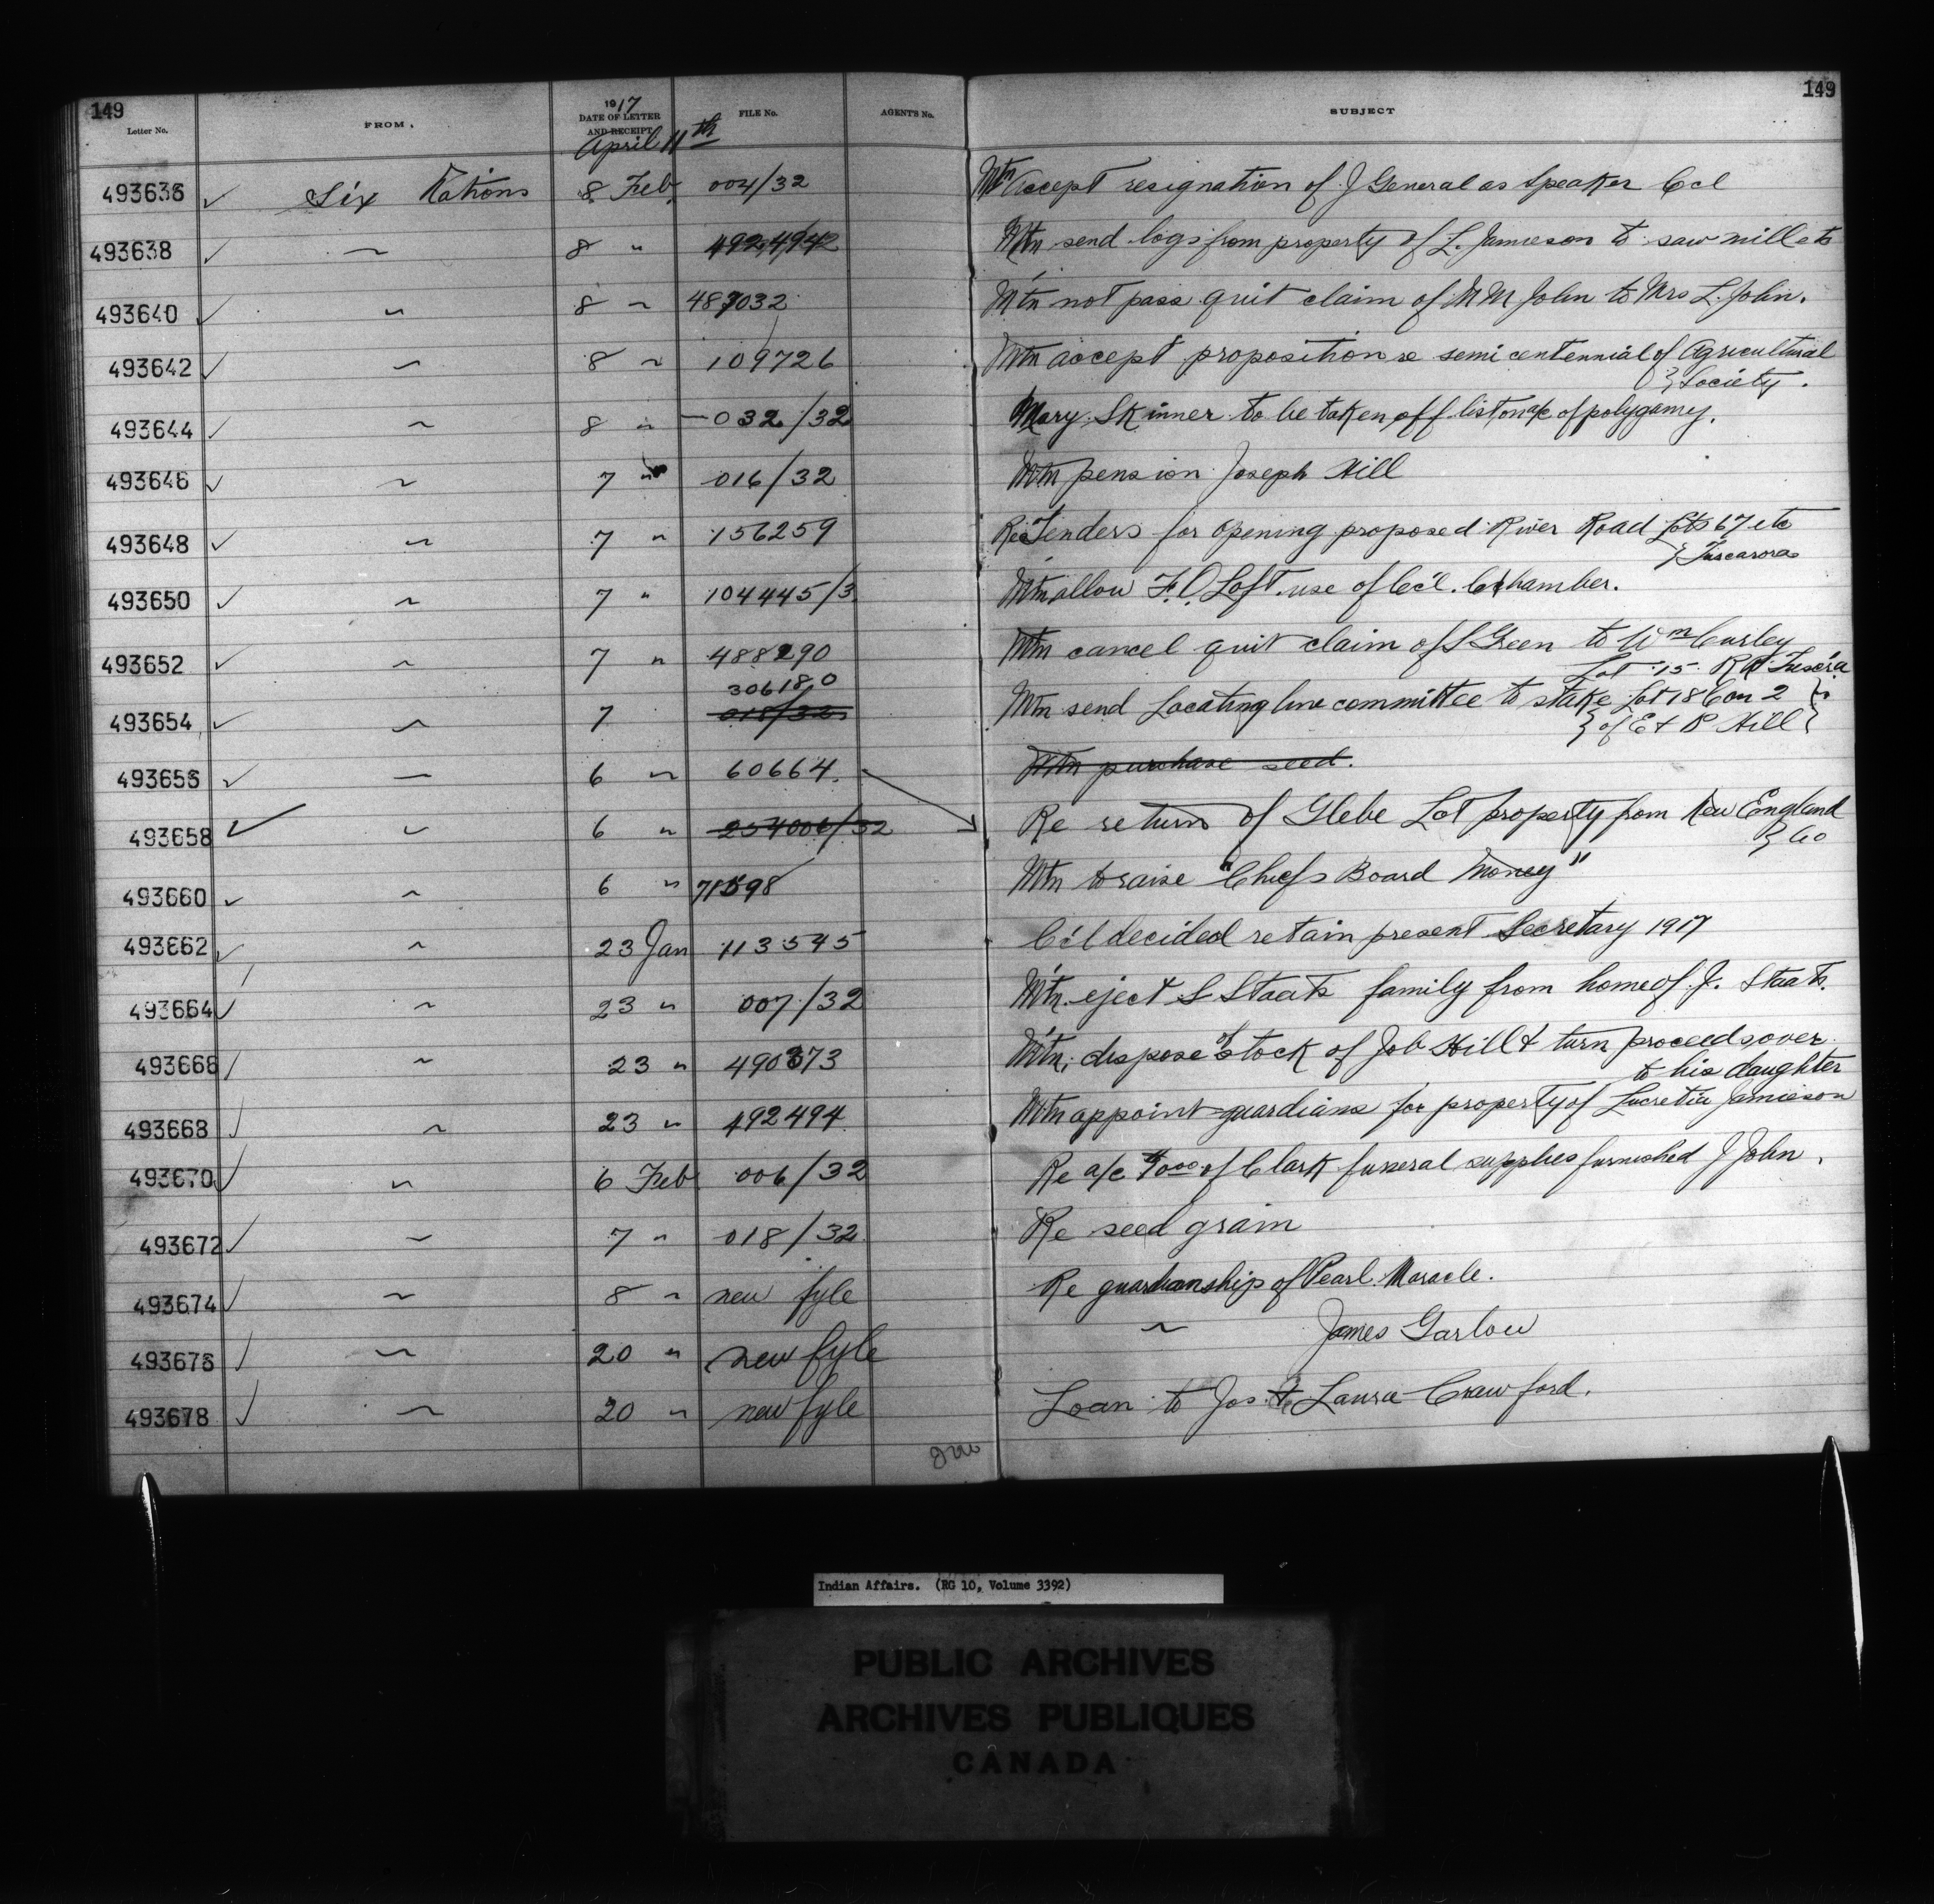 149 149
Letter No. FROM. 1917 DATE OF LETTER AND RECEIPT FILE No. AGENT'S No. SUBJECT
April 11th
493636 ✓ Six Nations 8 Feb. 004/32 Mtn accept resignation of J General as Speaker Ccl
493638 ✓ " 8 " 492494 Mtn send logs from property of L. Jamieson to saw mill etc
493640 ✓ " 8 " 487032 Mtn not pass quit claim of M M John to Mrs L. John.
493642 ✓ " 8 " 109726 Mtn accept proposition re semi centennial of Agricultural
} Society.
493644 ✓ " 8 " 032/32 Mary Skinner to be taken off list on a/c of polygamy.
493646 ✓ " 7 " 016/32 Mtn pension Joseph Hill
493648 ✓ " 7 " 156259 Re Tenders for opening proposed River Road Lots 67 etc
} Tuscarora
493650 ✓ " 7 " 104445/3 Mtn allow F. O. Loft use of Cc'l. Chamber.
493652 ✓ " 7 " 488290 Mtn cancel quit claim of S Green to Wm Curley
Lot 15 Tusc'ra
306180
493654 ✓ " 7 018/32 Mtn send Locating line committee to stake Lot 18 Con 2 }
} of E & P Hill }
493656 ✓ " 6 " 60664. Mtn purchase seed.
493658 ✓ " 6 " 254006/32 Re return of Glebe Lot property from New England
} Co
493660 ✓ " 6 " 71598 Mtn to raise "Chiefs Board Money"
493662 ✓ " 23 Jan 113545 Cc'l decided retain present Secretary 1917
493664 ✓ " 23 " 007/32 Mtn. eject S Staats family from home of J. Staats.
493666 ✓ " 23 " 490373 Mtn. dispose of stock of Job Hill & turn proceeds over
to his daughter
493668 ✓ " 23 " 492494 Mtn appoint guardians for property of Lucretia Jamieson
493670 ✓ " 6 Feb 006/32 Re a/c of Clark funeral supplies furnished J John.
493672 ✓ " 7 " 018/32 Re seed grain
493674 ✓ " 8 " new fyle Re guardianship of Pearl Maracle.
493676 ✓ " 20 " new fyle " James Garlow
493678 ✓ " 20 " new fyle Loan to Jos. & Laura Crawford.
Indian Affairs. (RG 10, Volume 3392)
PUBLIC ARCHIVES
ARCHIVES PUBLIQUES
CANADA